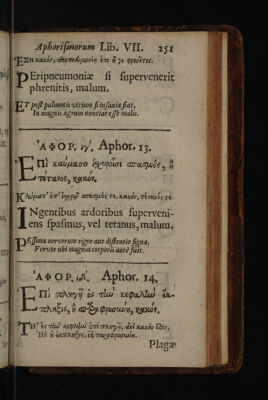 Aphorismorum Lib. VII. 251
Peripneumoniæ si supervenerit
phrenitis, malum.
Et post pulmonis vitium si insania fiat,
In magnis ægrum nuntiat esse malis.
ἈΦΟΡ. ιγʹ. Aphor. 13.
Ἐπὶ καύμασιν ἰσχυροῖσι σπασμὸς, ἢ
τέτανος, κακόν.
INgentibus ardoribus superveni-
ens spasmus, vel tetanus, malum.
Pessima nervorum rigor aut distentio signa,
Fervor ubi magnus corporis antè fuit.
ἈΦΟΡ. ιδʹ. Aphor. 14.
Ἐπὶ πληγῇ ἐς τὴν κεφαλὴν ἔκ-
πληξις, ἢ παραφροσύνη, κακόν.
Plagæ